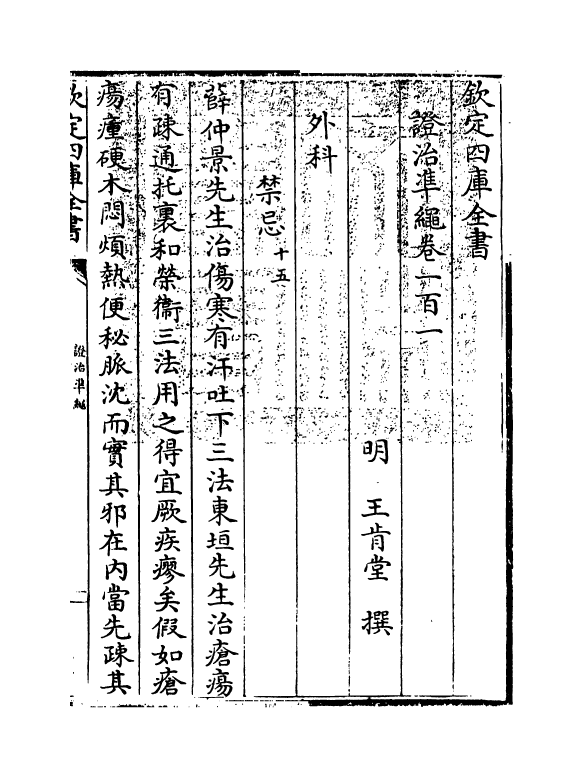 欽定四庫全書
證治準繩卷一百一
明 王肯堂 撰
外科
禁忌十五
薛仲景先生治傷寒有汗吐下三法東垣先生治瘡瘍
有疎通托裏和榮衞三法用之得宜厥疾瘳矣假如瘡
瘍瘇硬木悶煩熱便秘脈沈而實其邪在内當先疎其
欽定四庫全書
證治準繩
一